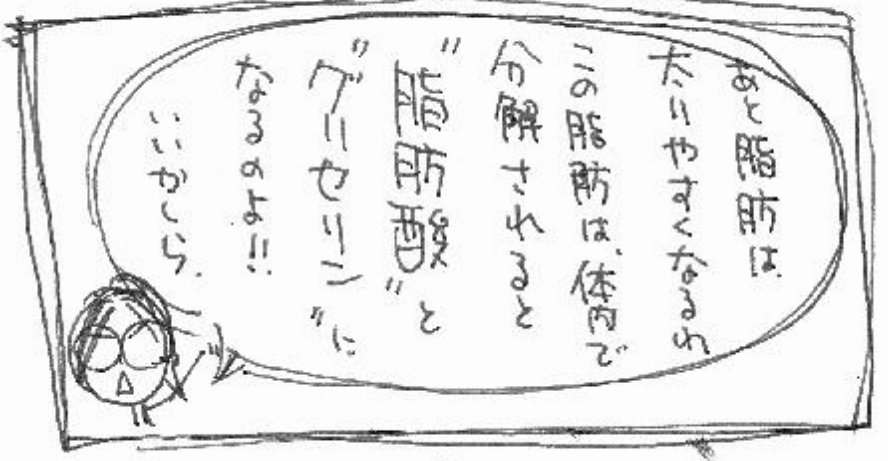 あと脂肪は、
太りやすくなるわ
この脂肪は、体内で
分解されると
"脂肪酸"と
"グリセリン"に
なるのよ!!
いいかしら.